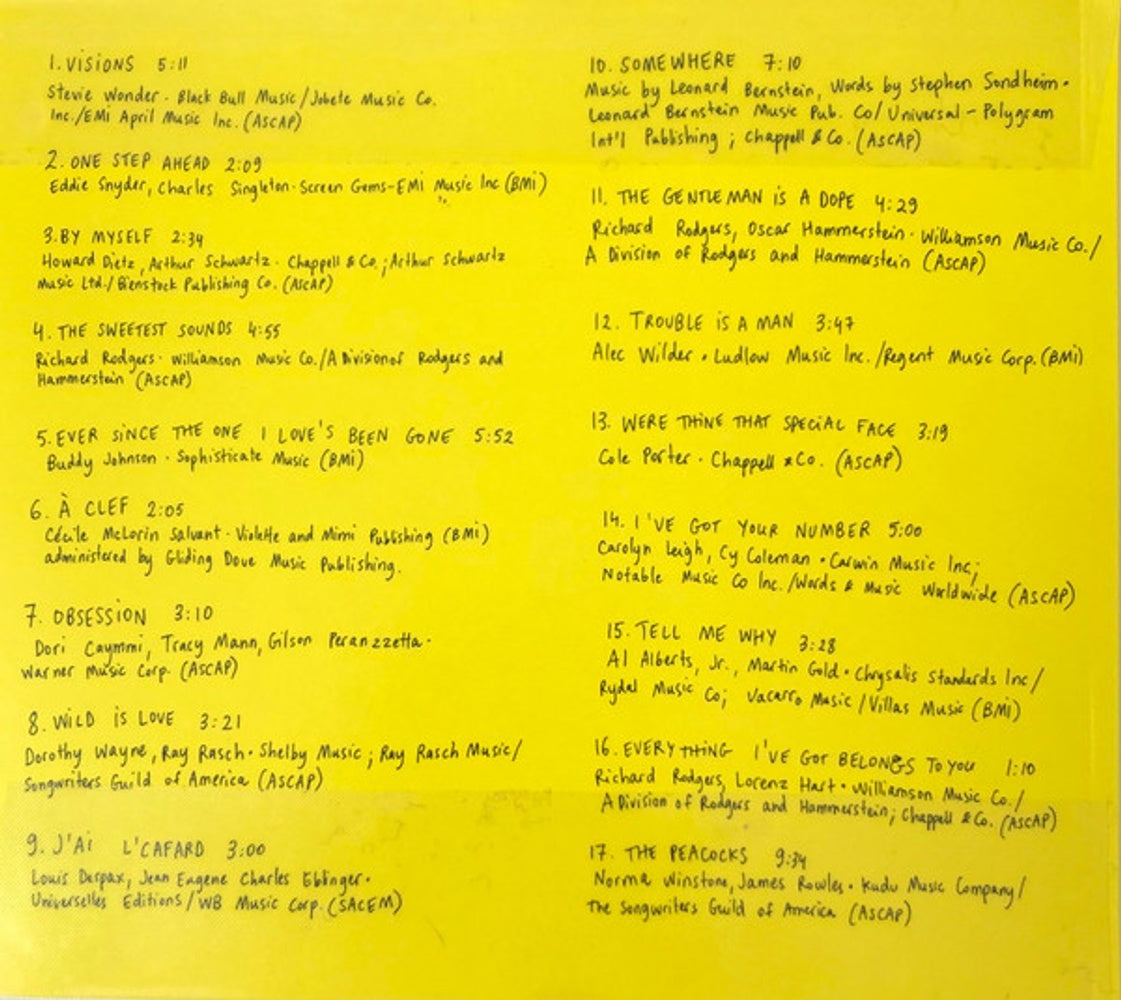 1. VISIONS 5:11
Stevie Wonder · Black Bull Music/Jobete Music Co.
Inc./EMI April Music Inc. (ASCAP)
2. ONE STEP AHEAD 2:09
Eddie Snyder, Charles Singleton · Screen Gems-EMI Music Inc (BMI)
3. BY MYSELF 2:34
Howard Dietz, Arthur Schwartz · Chappell & Co.; Arthur Schwartz
Music Ltd./Bienstock Publishing Co. (ASCAP)
4. THE SWEETEST SOUNDS 4:55
Richard Rodgers · Williamson Music Co./A Division of Rodgers and
Hammerstein (ASCAP)
5. EVER SINCE THE ONE I LOVE'S BEEN GONE 5:52
Buddy Johnson · Sophisticate Music (BMI)
6. À CLEF 2:05
Cécile McLorin Salvant · Violette and Mimi Publishing (BMI)
administered by Gliding Dove Music Publishing.
7. OBSESSION 3:10
Dori Caymmi, Tracy Mann, Gilson Peranzzetta ·
Warner Music Corp. (ASCAP)
8. WILD IS LOVE 3:21
Dorothy Wayne, Ray Rasch · Shelby Music; Ray Rasch Music/
Songwriters Guild of America (ASCAP)
9. J'AI L'CAFARD 3:00
Louis Despax, Jean Eugene Charles Eblinger ·
Universelles Editions/WB Music Corp. (SACEM)
10. SOMEWHERE 7:10
Music by Leonard Bernstein, Words by Stephen Sondheim ·
Leonard Bernstein Music Pub. Co/Universal - Polygram
Int'l Publishing; Chappell & Co. (ASCAP)
11. THE GENTLEMAN IS A DOPE 4:29
Richard Rodgers, Oscar Hammerstein · Williamson Music Co./
A Division of Rodgers and Hammerstein (ASCAP)
12. TROUBLE IS A MAN 3:47
Alec Wilder · Ludlow Music Inc./Regent Music Corp. (BMI)
13. WERE THINE THAT SPECIAL FACE 3:19
Cole Porter · Chappell & Co. (ASCAP)
14. I'VE GOT YOUR NUMBER 5:00
Carolyn Leigh, Cy Coleman · Carwin Music Inc;
Notable Music Co Inc./Words & Music Worldwide (ASCAP)
15. TELL ME WHY 3:28
Al Alberts, Jr., Martin Gold · Chrysalis Standards Inc/
Rydal Music Co; Vacarro Music/Villas Music (BMI)
16. EVERYTHING I'VE GOT BELONGS TO YOU 1:10
Richard Rodgers, Lorenz Hart · Williamson Music Co./
A Division of Rodgers and Hammerstein; Chappell & Co. (ASCAP)
17. THE PEACOCKS 9:34
Norma Winstone, James Rowles · Kudu Music Company/
The Songwriters Guild of America (ASCAP)